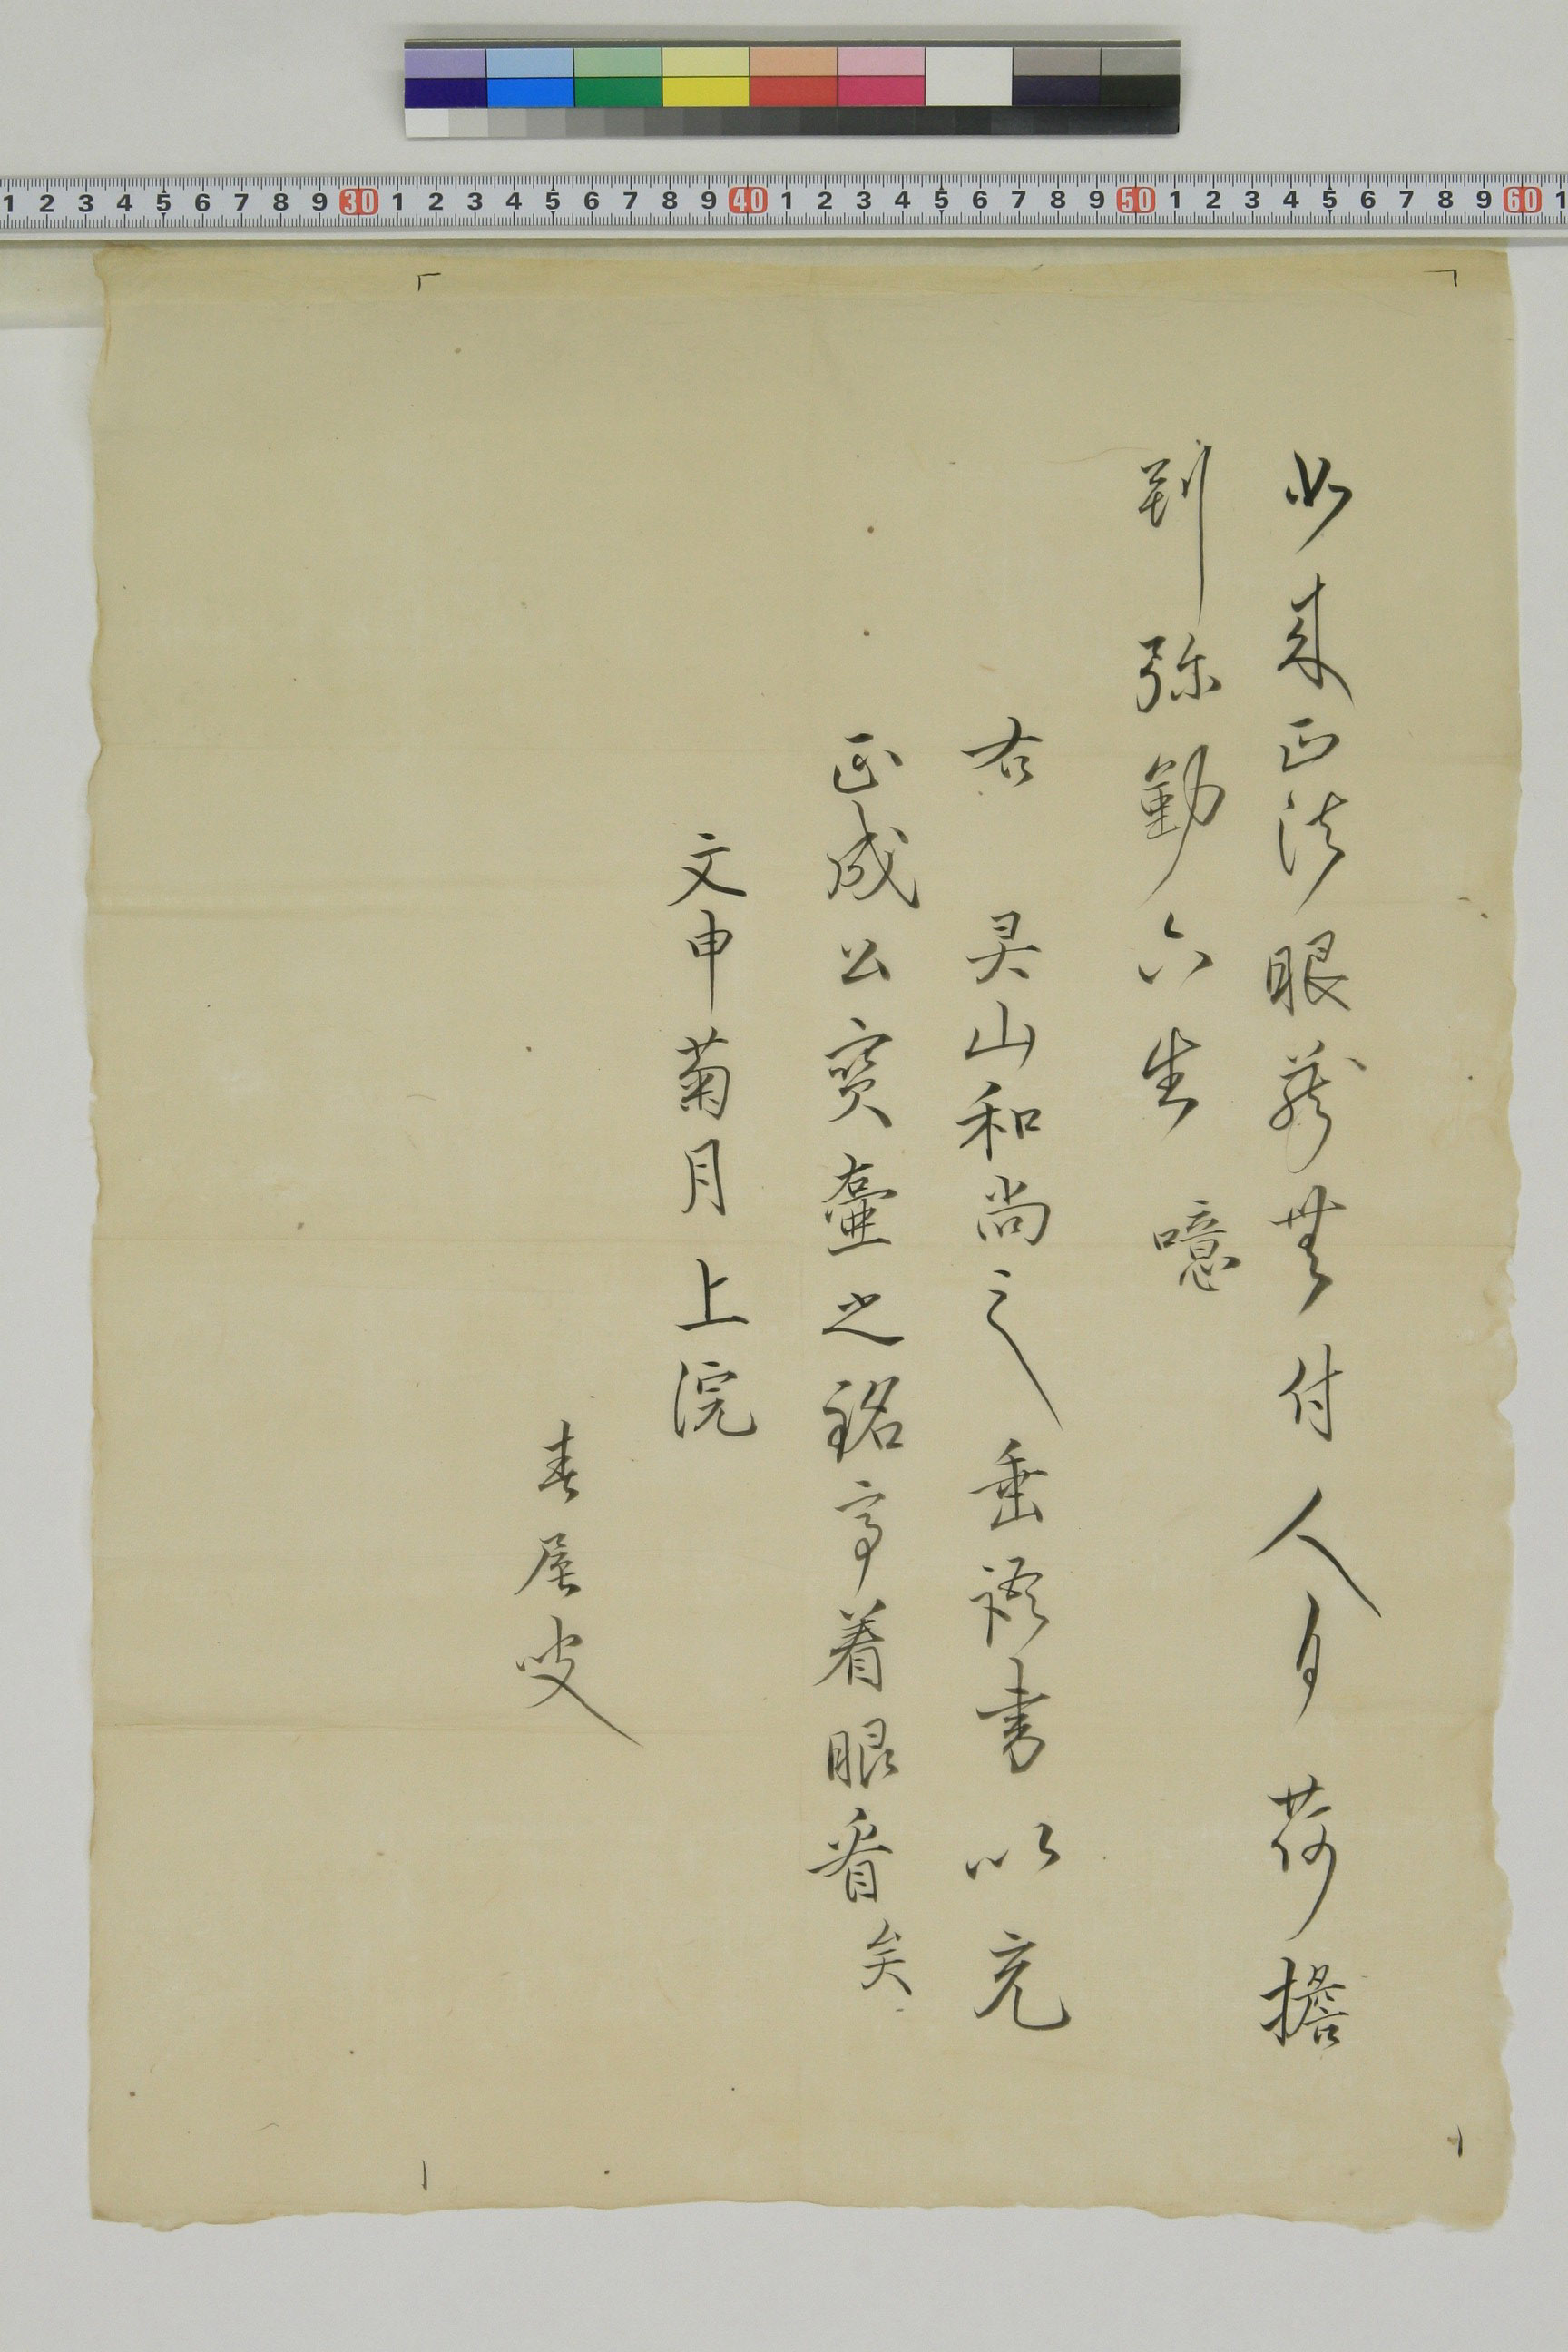 1 2 3 4 5 6 7 8 9 30 1 2 3 4 5 6 7 8 9 40 1 2 3 4 5 6 7 8 9 50 1 2 3 4 5 6 7 8 9 60 1
如来正法眼蔵無付人自荷擔
到弥勒下生噫
右 灵山和尚之垂語書以充
正成公宝壷之銘高着眼看矣
丙申菊月上浣
春屋叟